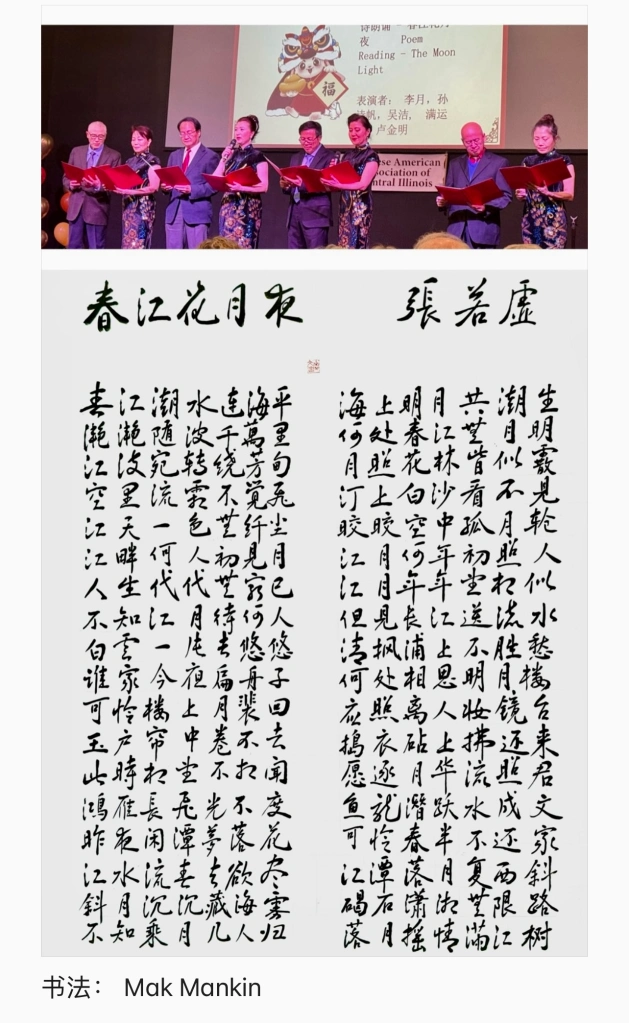 诗朗诵 - 春江花月
夜 Poem
Reading - The Moon
Light
表演者: 李月, 孙
帆, 吴洁, 满运
卢金明
ese American
sociation of
ntral Illinois
春江花月夜 張若虚
春江潮水连海平 海上明月共潮生
滟滟随波千萬里 何处春江無月明
江流宛转绕芳甸 月照花林皆似霰
空里流霜不觉飞 汀上白沙看不见
江天一色無纤尘 皎皎空中孤月轮
江畔何人初见月 江月何年初照人
人生代代無穷已 江月年年望相似
不知江月待何人 但见長江送流水
白云一片去悠悠 清枫浦上不胜愁
谁家今夜扁舟子 何处相思明月楼
可怜楼上月裴回 应照离人妆镜台
玉户帘中卷不去 捣衣砧上拂还来
此時相望不相闻 愿逐月华流照君
鸿雁長飞光不度 鱼龍潜跃水成文
昨夜闲潭梦落花 可怜春半不还家
江水流春去欲尽 江潭落月复西斜
斜月沉沉藏海雾 碣石潇湘無限路
不知乘月几人归 落月摇情满江树
书法： Mak Mankin